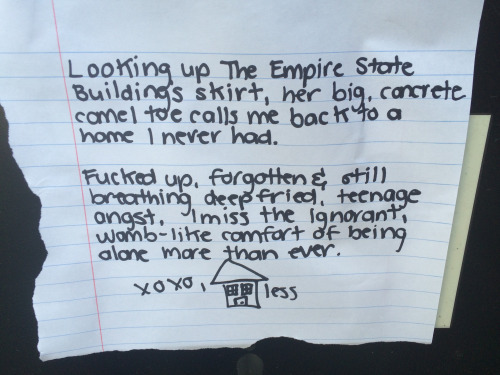 Looking up The Empire State
Building's skirt, her big, concrete
camel toe calls me back to a
home I never had.
Fucked up, forgotten & still
breathing deep fried, teenage
angst, I miss the ignorant,
womb-like comfort of being
alone more than ever.
xoxo, less